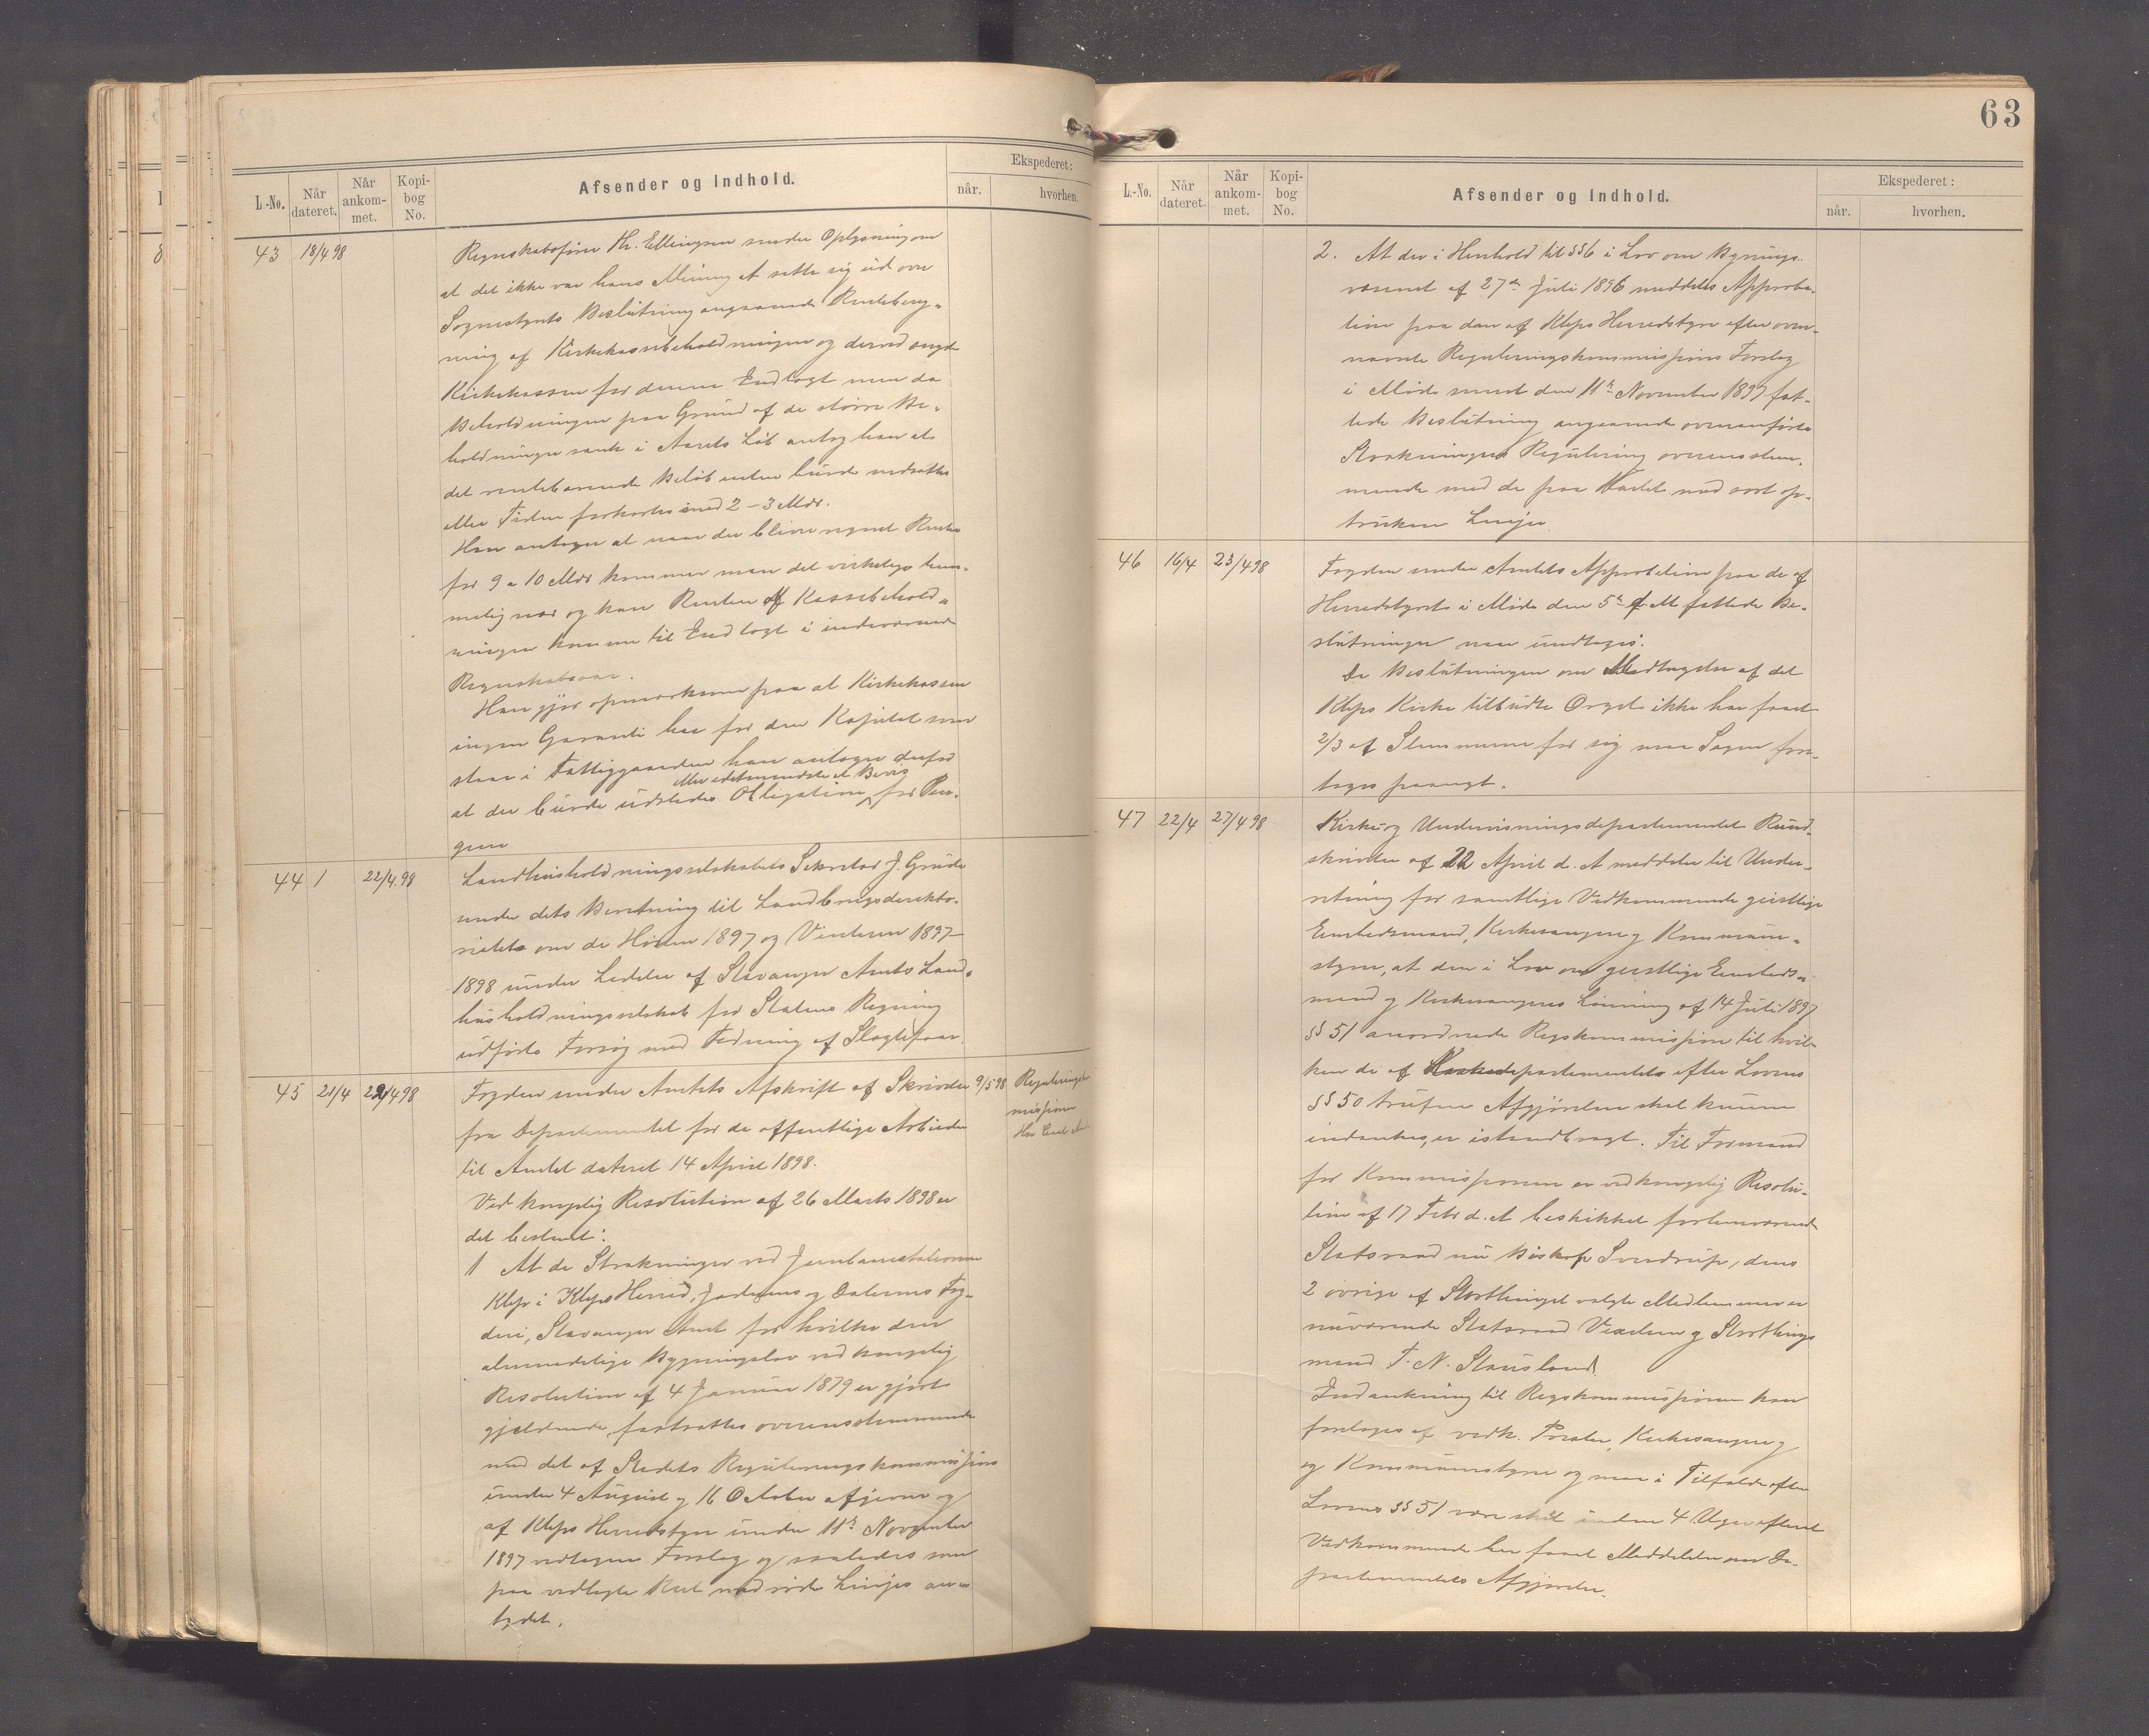 L.-No.
Når dateret.
Når ankommet.
Kopibog No.
Afsender og Indhold.
Ekspederet:
når.
hvorhen.
43 18/4 98
Regnskabsfører Th. Ellingsen sender Oplysning om
at det ikke var hans Mening at sætte sig ud over
Sognestyrets Beslutning angaaende Rentebereg-
ning af Kirkekassebeholdningen og derved
Kirkekassen for denne Indtægt men da
Beholdningen paa Grund af de større Be-
holdninger sank i Aarets Løb antog han at
det rentebærende Beløb enten burde nedsættes
eller Tiden forkortes med 2-3 Mdr.
Han antager at naar der bliver regnet Rente
for 9 a 10 Mdr kommer man det virkelige tem-
melig nær og kan Renten af Kassebehold-
ningen komme til Indtægt i indeværende
Regnskabsaar.
Han gjør opmærksom paa at Kirkekassen
ingen Garanti har for den Kapital som
staar i Fattiggaarden han antager derfor
eller idetmindste et Bevis
at der burde udstedes Obligation for Pen-
gene
44 / 22/4.98
Landhusholdningsselskabets Sekretær J. Grude
sender dets Beretning til Landbrugsdirektø-
riatet om de Høsten 1897 og Vinteren 1897-
1898 under Ledelse af Stavanger Amts Land-
husholdningsselskab for Statens Regning
udførte Forsøg med Fedning af Slagtefaar.
45 21/4 22/4 98
Fogden sender Amtets Afskrift af Skrivelse
9/5 98
fra Departementet for de offentlige Arbeider
til Amtet dateret 14 April 1898.
Ved kongelig Resolution af 26 Marts 1898 er
det bestemt:
1 At de Strækninger ved Jernbanestationen
Klep i Kleps Herred, Jæderens og Dalernes Fog-
deri, Stavanger Amt for hvilke den
almindelige Bygningslov ved kongelig
Resolution af 4 Januar 1879 er gjort
gjældende, fastsættes overensstemmende
med det af Stedets Reguleringskommission
under 4 August og 16 October afgivne og
af Kleps Herredstyre under 11te November
1897 vedtagne Forslag og saaledes som
paa vedlagte Kart med røde Linjer an-
tydet.
63
L.-No.
Når dateret.
Når ankommet.
Kopibog No.
Afsender og Indhold.
Ekspederet:
når.
hvorhen.
2. At der i Henhold til §§6 i Lov om Bygnings-
væsenet af 27de Juli 1896 meddeles Approba-
tion paa den af Kleps Herredstyre efter oven-
nævnte Reguleringskommissions Forslag
i Møde den 11te November 1897 fat-
tede Beslutning angaaende ovenanførte
Stræknings Regulering overensstem-
mende med de paa Kartet med sort op-
trukne Linjer.
46 16/4 23/4 98
Fogden sender Amtets Approbation paa de af
Herredstyret i Møde den 5te f. M fattede Be-
slutninger
Da Beslutningen om Modtagelse af det
Kleps Kirke tilbudte Orgel ikke har faaet
2/3 af Stemmerne for sig maa Sagen fore-
tages paanyt.
47 22/4 27/4 98
Kirke og Undervisningsdepartementet Rund-
skrivelse af 22 April d. A meddeler til Under-
retning for samtlige Vedkommende geistlige
Embedsmænd, Kirkesangere og Kommune-
styrer, at den i Lov om geistlige Embeds-
mænd og Kirkesangeres Lønning af 14 Juli 1897
§§ 51 anordnede Rigskommission til hvil-
ken de af Kirkedepartementet efter Lovens
§§ 50 trufne Afgjørelser skal kunne
indankes, er istandbragt. Til Formand
for Kommissionen er ved kongelig Resolu-
tion af 17 Febr d. A beskikket forhenværende
Statsraad nu Biskop Sverdrup, dens
2 øvrige af Storthinget valgte Medlemmer er
nuværende Statsraad og Storthings-
mand T. N. Stousland.
Indankning til Rigskommissionen kan
foretages af vedk. Prester, Kirkesangere og
og Kommunestyre og maa i Tilfælde efter
Lovens §§ 51 være skeet inden 4 Uger efterat
Vedkommende har faaet Meddelelse om De-
partementets Afgjørelse.